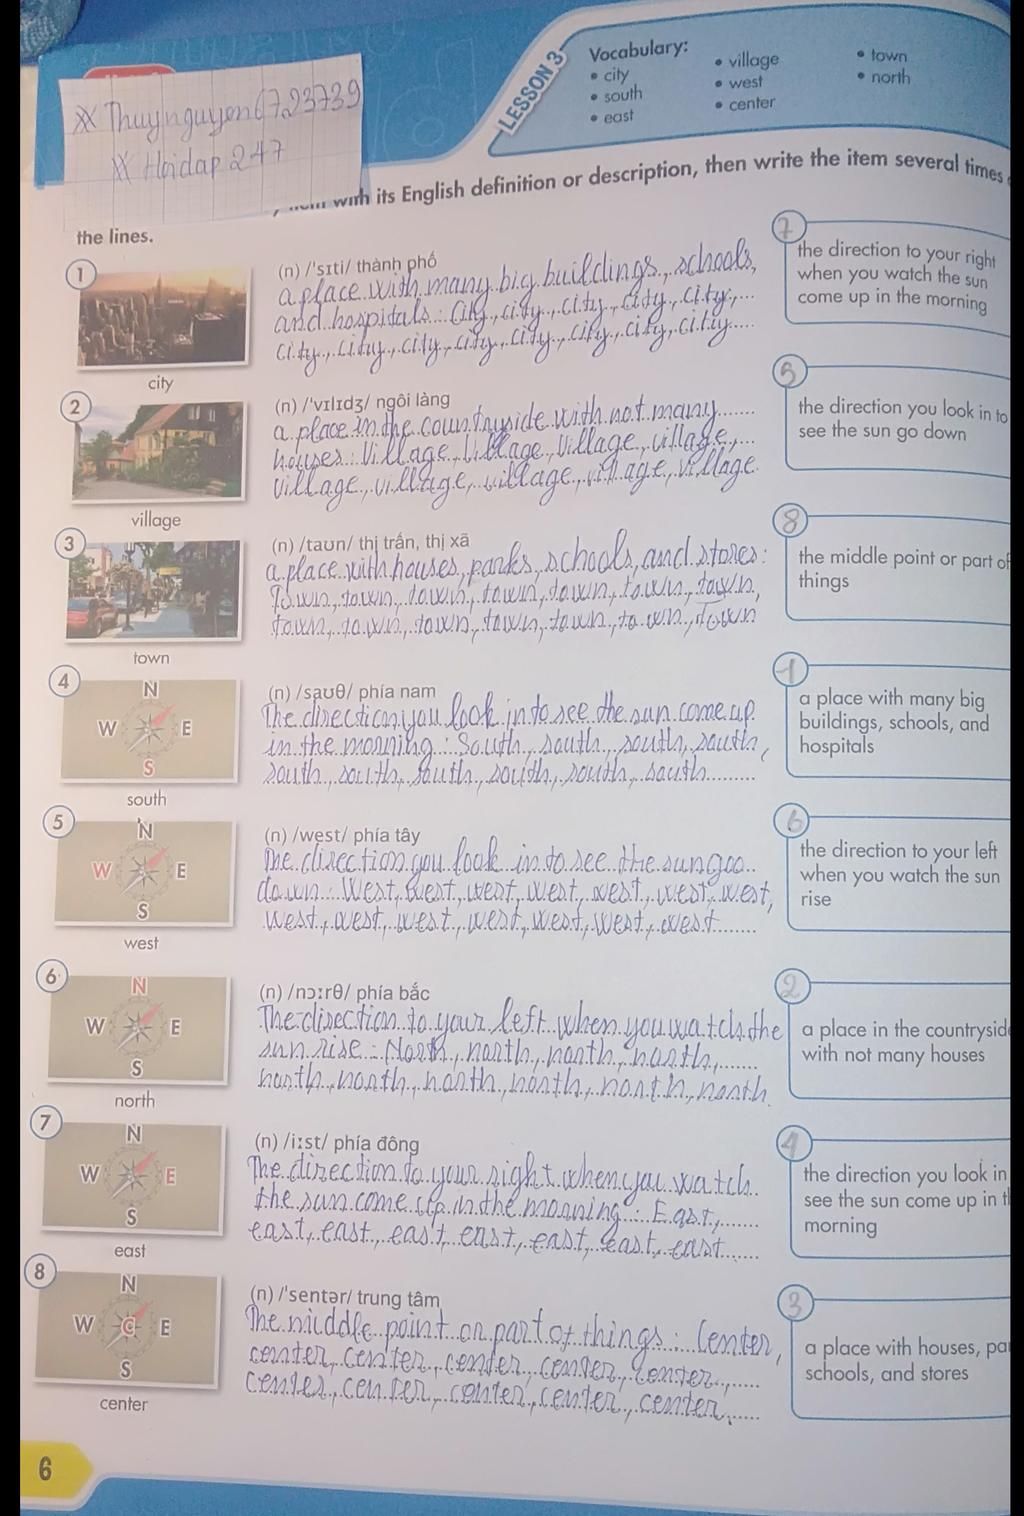 XX Thuynguyen6723739
XX Hoidap 247
LESSON 3
Vocabulary:
• city
• south
• east
• village
• west
• center
• town
• north
with its English definition or description, then write the item several times
the lines.
1
city
(n) /'sɪti/ thành phố
a place with many big buildings, schools,
and hospitals: City, city, city, city, city, city,
city, city, city, city, city, city, city, city
7
the direction to your right
when you watch the sun
come up in the morning
2
village
(n) /'vɪlɪdʒ/ ngôi làng
a place in the countryside with not many
houses: Village, village, village, village,
village, village, village, village, village
5
the direction you look in to
see the sun go down
3
town
(n) /taʊn/ thị trấn, thị xã
a place with houses, parks, schools, and stores:
Town, town, town, town, town, town, town,
town, town, town, town, town, town, town
8
the middle point or part of
things
4
N
W E
S
south
(n) /saʊθ/ phía nam
The direction you look in to see the sun come up
in the morning: South, south, south, south,
south, south, south, south, south, south
1
a place with many big
buildings, schools, and
hospitals
5
N
W E
S
west
(n) /west/ phía tây
The direction you look in to see the sun goo
down: West, west, west, west, west, west, west,
west, west, west, west, west, west, west
6
the direction to your left
when you watch the sun
rise
6
N
W E
S
north
(n) /nɔːrθ/ phía bắc
The direction to your left when you watch the
sun rise: North, north, north, north,
north, north, north, north, north, north
2
a place in the countryside
with not many houses
7
N
W E
S
east
(n) /iːst/ phía đông
The direction to your right when you watch
the sun come up in the morning: East,
east, east, east, east, east, east, east
4
the direction you look in
see the sun come up in
morning
8
N
W C E
S
center
(n) /'sentər/ trung tâm
The middle point or part of things: Center,
center, center, center, center, center,
center, center, center, center, center,
3
a place with houses,
schools, and stores
6